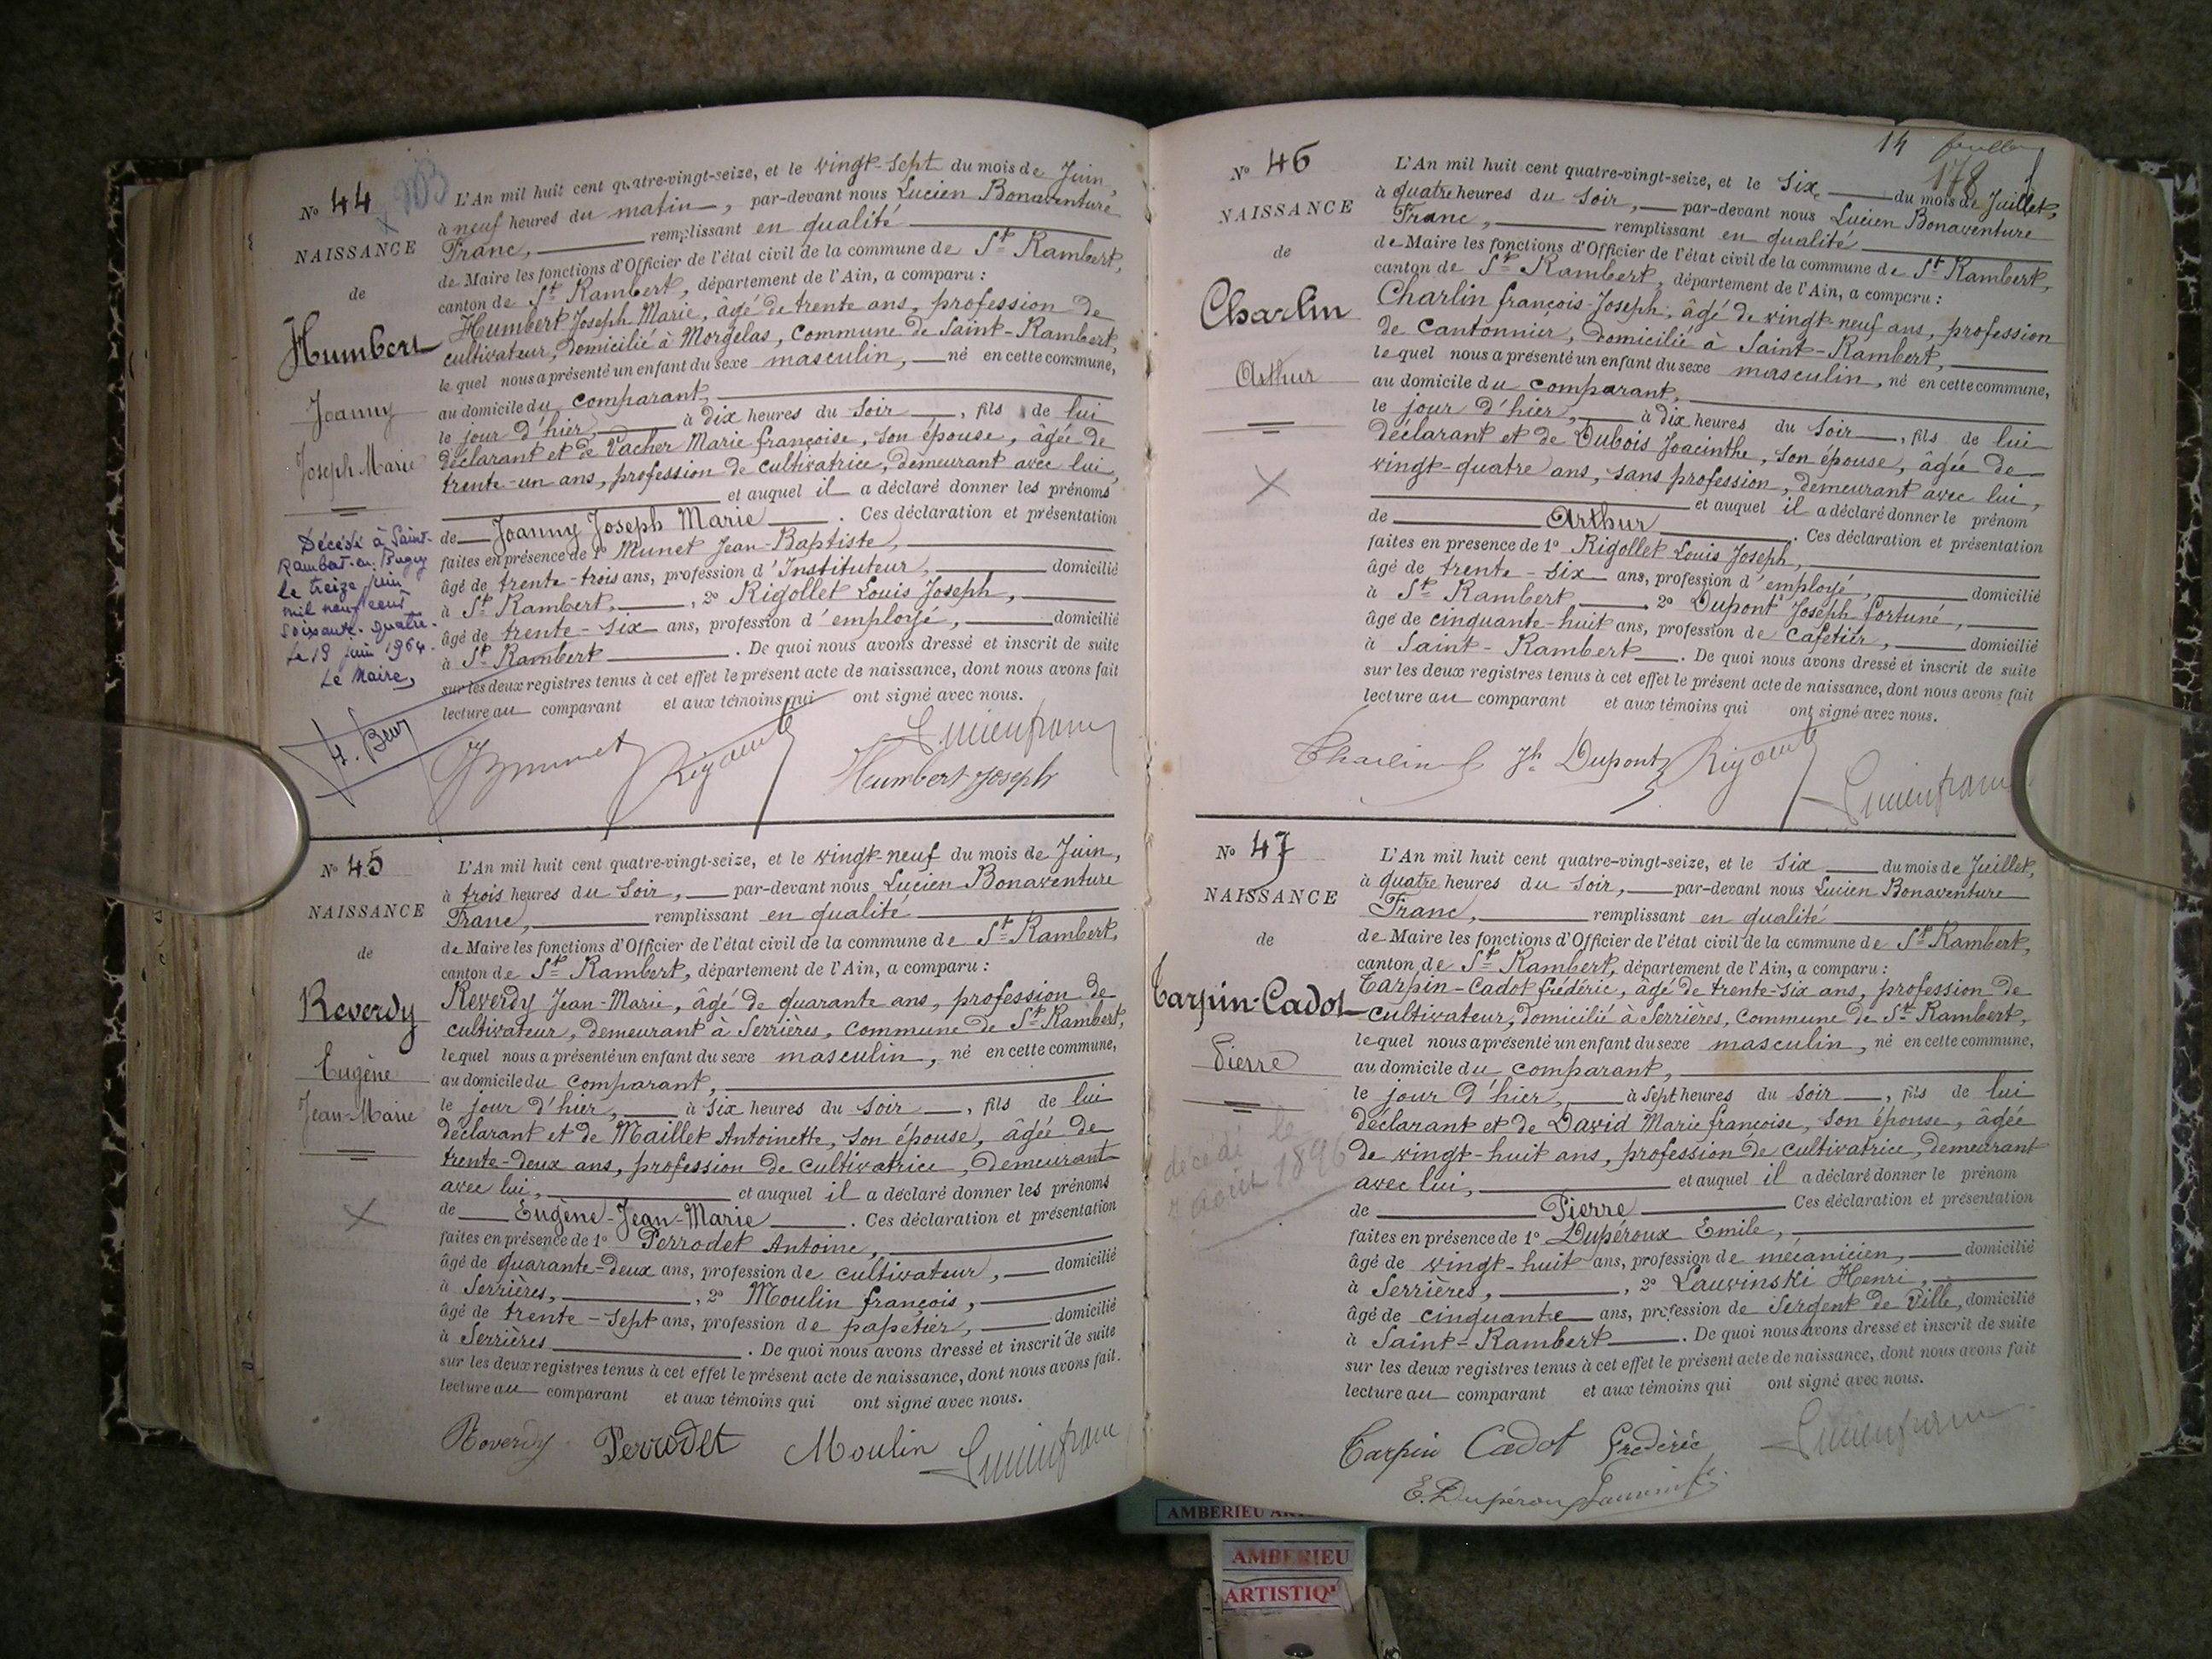 No 44
NAISSANCE
de
Humbert
Joanny
Joseph Marie
Décédé à Saint-
Rambert-en-Bugey
le treize juin
mil neuf cent
soixante-quatre.
Le 19 juin 1964.
Le Maire,
L'An mil huit cent quatre-vingt-seize, et le vingt-sept du mois de Juin,
à neuf heures du matin, par-devant nous Lucien Bonaventure
Franc, remplissant en qualité
de Maire les fonctions d'Officier de l'état civil de la commune de St Rambert,
canton de St Rambert, département de l'Ain, a comparu :
Humbert Joseph Marie, âgé de trente ans, profession de
cultivateur, domicilié à Morgelas, commune de Saint-Rambert,
lequel nous a présenté un enfant du sexe masculin, né en cette commune,
au domicile du comparant,
le jour d'hier, à dix heures du soir, fils de lui
déclarant et de Vacher Marie françoise, son épouse, âgée de
trente-un ans, profession de cultivatrice, demeurant avec lui,
et auquel il a déclaré donner les prénoms
de Joanny Joseph Marie. Ces déclaration et présentation
faites en présence de 1o Munet Jean-Baptiste,
âgé de trente-trois ans, profession d'Instituteur, domicilié
à St Rambert, 2o Rigollet Louis Joseph,
âgé de trente-six ans, profession d'employé, domicilié
à St Rambert. De quoi nous avons dressé et inscrit de suite
sur les deux registres tenus à cet effet le présent acte de naissance, dont nous avons fait
lecture au comparant et aux témoins qui ont signé avec nous.
Lucien franc
Humbert Joseph
No 45
NAISSANCE
de
Reverdy
Eugène
Jean-Marie
L'An mil huit cent quatre-vingt-seize, et le vingt-neuf du mois de Juin,
à trois heures du soir, par-devant nous Lucien Bonaventure
Franc, remplissant en qualité
de Maire les fonctions d'Officier de l'état civil de la commune de St Rambert,
canton de St Rambert, département de l'Ain, a comparu :
Reverdy Jean-Marie, âgé de quarante ans, profession de
cultivateur, demeurant à Serrières, commune de St Rambert,
lequel nous a présenté un enfant du sexe masculin, né en cette commune,
au domicile du comparant,
le jour d'hier, à six heures du soir, fils de lui
déclarant et de Maillet Antoinette, son épouse, âgée de
trente-deux ans, profession de cultivatrice, demeurant
avec lui, et auquel il a déclaré donner les prénoms
de Eugène-Jean-Marie. Ces déclaration et présentation
faites en présence de 1o Perrodet Antoine,
âgé de quarante-deux ans, profession de cultivateur, domicilié
à Serrières, 2o Moulin françois,
âgé de trente-sept ans, profession de papetier, domicilié
à Serrières. De quoi nous avons dressé et inscrit de suite
sur les deux registres tenus à cet effet le présent acte de naissance, dont nous avons fait
lecture au comparant et aux témoins qui ont signé avec nous.
Reverdy Perrodet Moulin Lucien franc
14
178
No 46
NAISSANCE
de
Charlin
Arthur
L'An mil huit cent quatre-vingt-seize, et le six du mois de Juillet,
à quatre heures du soir, par-devant nous Lucien Bonaventure
Franc, remplissant en qualité
de Maire les fonctions d'Officier de l'état civil de la commune de St Rambert,
canton de St Rambert, département de l'Ain, a comparu :
Charlin françois-Joseph, âgé de vingt-neuf ans, profession
de cantonnier, domicilié à Saint-Rambert,
lequel nous a présenté un enfant du sexe masculin, né en cette commune,
au domicile du comparant,
le jour d'hier, à dix heures du soir, fils de lui
déclarant et de Dubois Joacinthe, son épouse, âgée de
vingt-quatre ans, sans profession, demeurant avec lui,
et auquel il a déclaré donner le prénom
de Arthur. Ces déclaration et présentation
faites en présence de 1o Rigollet Louis Joseph,
âgé de trente-six ans, profession d'employé, domicilié
à St Rambert. 2o Dupont Joseph fortuné,
âgé de cinquante-huit ans, profession de cafetier, domicilié
à Saint-Rambert. De quoi nous avons dressé et inscrit de suite
sur les deux registres tenus à cet effet le présent acte de naissance, dont nous avons fait
lecture au comparant et aux témoins qui ont signé avec nous.
Charlin f Jh Dupont Lucien franc
No 47
NAISSANCE
de
Carpin-Cadot
Pierre
décédé le
7 août 1896
L'An mil huit cent quatre-vingt-seize, et le six du mois de Juillet,
à quatre heures du soir, par-devant nous Lucien Bonaventure
Franc, remplissant en qualité
de Maire les fonctions d'Officier de l'état civil de la commune de St Rambert,
canton de St Rambert, département de l'Ain, a comparu :
Carpin-Cadot frédéric, âgé de trente-six ans, profession de
cultivateur, domicilié à Serrières, commune de St Rambert,
lequel nous a présenté un enfant du sexe masculin, né en cette commune,
au domicile du comparant,
le jour d'hier, à sept heures du soir, fils de lui
déclarant et de David Marie françoise, son épouse, âgée
de vingt-huit ans, profession de cultivatrice, demeurant
avec lui, et auquel il a déclaré donner le prénom
de Pierre Ces déclaration et présentation
faites en présence de 1o Dupéroux Emile,
âgé de vingt-huit ans, profession de mécanicien, domicilié
à Serrières, 2o Lauwinski Henri,
âgé de cinquante ans, profession de Sergent de Ville, domicilié
à Saint-Rambert. De quoi nous avons dressé et inscrit de suite
sur les deux registres tenus à cet effet le présent acte de naissance, dont nous avons fait
lecture au comparant et aux témoins qui ont signé avec nous.
Carpin Cadot Frédéric Lucien franc
E. Dupéroux
AMBERIEU
AMBERIEU
ARTISTIQ